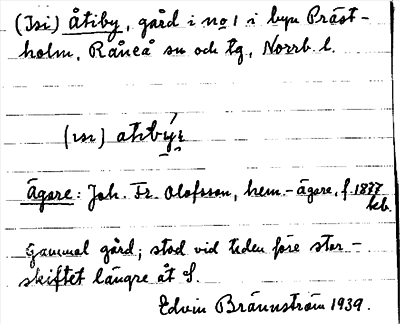 (Isi) Åtiby, gård i no 1 i byn Präst-
holm, Råneå sn och tg, Norrb. l.
(ısı) atıbý
Ägare: Joh. Fr. Olofsson, hem.-ägare, f. 1877
Gammal gård; stod vid tiden före stor-
skiftet längre åt S.
Edvin Brännström 1939.